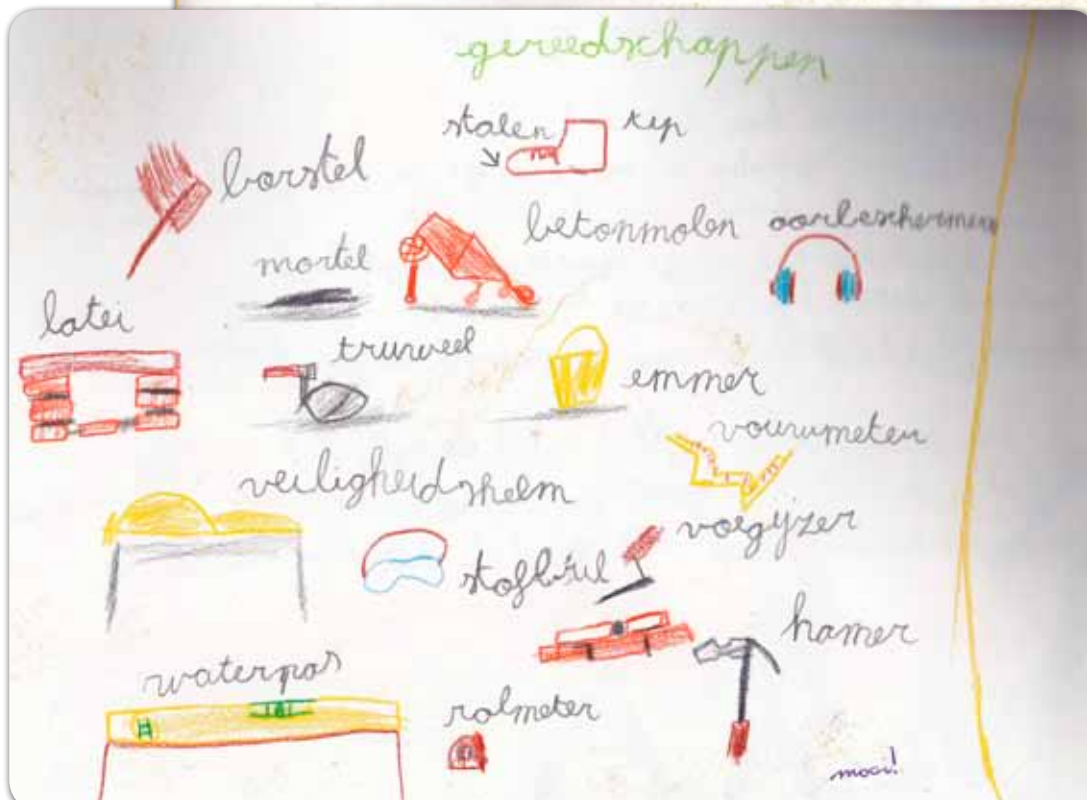 gereedschappen
stalen tip
borstel
betonmolen
oorbeschermers
mortel
latei
truweel
emmer
vouwmeter
veiligheidshelm
voegijzer
stofbril
hamer
waterpas
rolmeter
mooi!